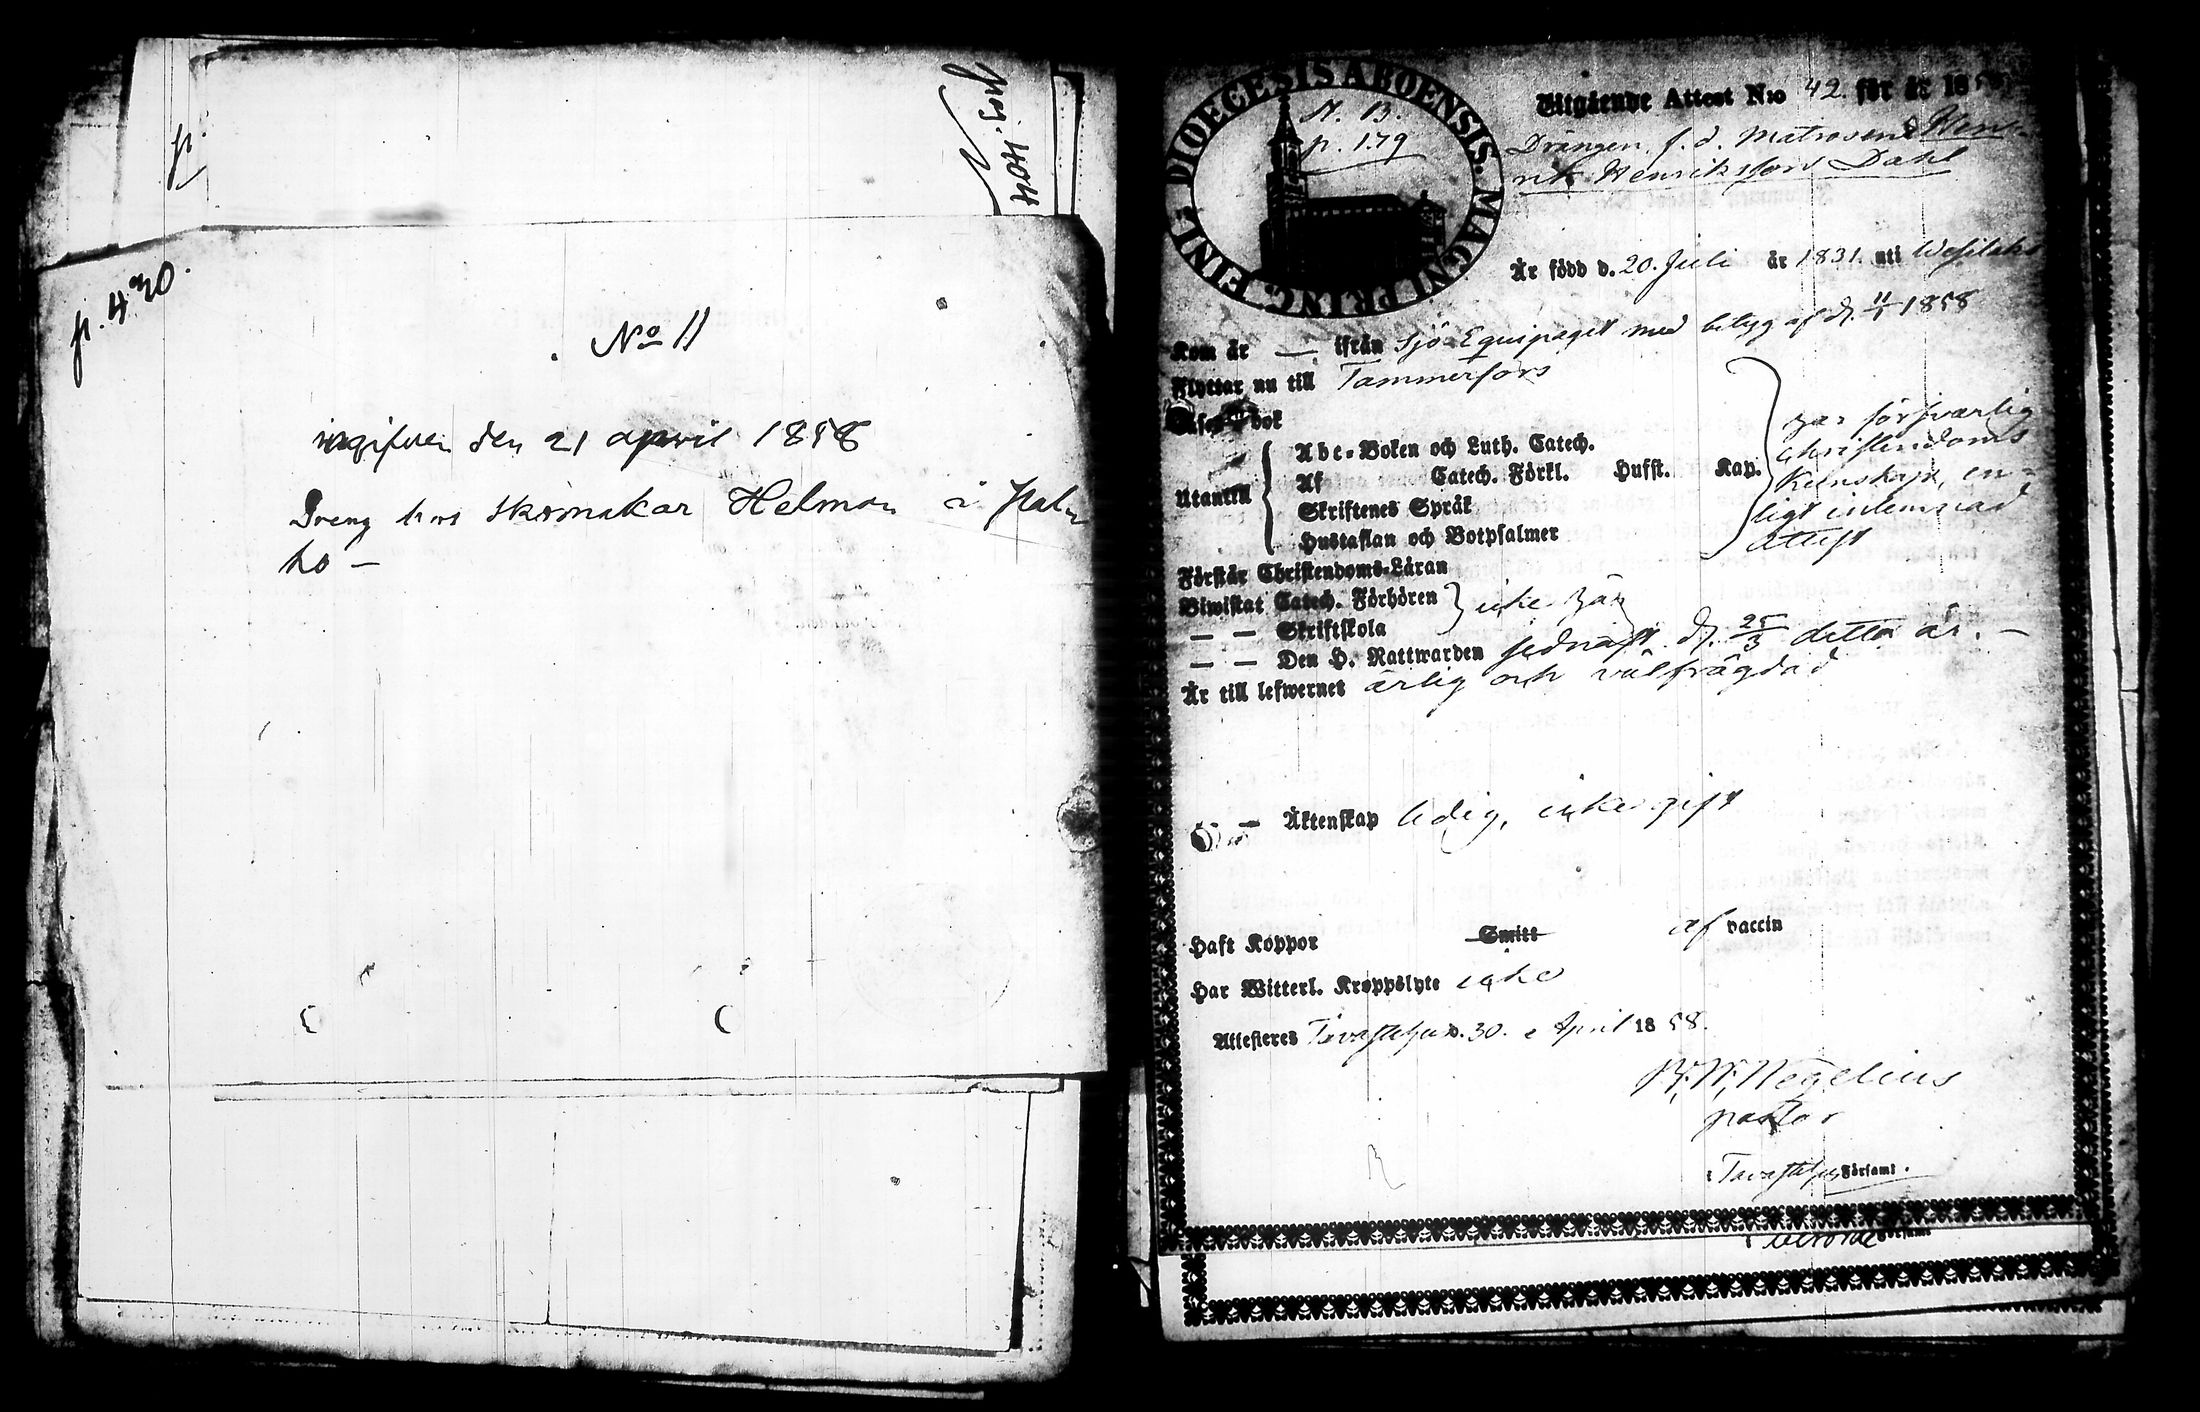 p.
Ing. 404
p. 430.
No 11
ingifven den 21 april 1858
Dreng hos skomakar Helman i Hat
ho —
DIOECESIS ABOENSIS. MAGNI PRINC. FINL.
N. B.
p. 179
Utgående Attest N:o 42. för år 185
Drängen, f. d. Matrosen Hen-
rik Henriksson Dahl
Är född d. 20. Juli år 1831. uti Wesilaks
Kom år — ifrån Sjö-Equipaget med betyg af d. 11/1 1858
Flyttar nu till Tammerfors
Läser i bok
Utantill
Abc-Boken och Luth. Catech.
Af Catech. Förkl. Hufst. Kap.
Skriftenes Språk
Hustaflan och Botpsalmer
har försvarlig
christendoms
kunskap, en-
ligt inlemnad
attest
Förstår Christendoms-Läran
Biwistat Catech. Förhören
— — Skriftskola
icke här
— — Den H. Nattwarden sednast d. 25/3 detta år. —
Är till lefwernet ärlig och välfrägdad
— Äktenskap ledig, icke gift
Haft Koppor Smitt af vaccin
Har Witterl. Kroppslyte icke
Attesteres Tavastehus d. 30. April 1858.
Negelius
pastor
i Tavastehus Församl.
i Församl